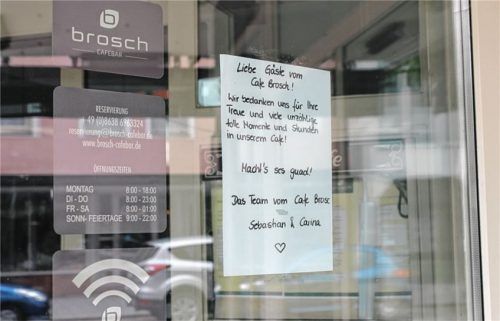 brosch
CAFEBAR
RESERVIERUNG
49 (0)8638 6983324
reservierung@brosch-cafebar.de
www.brosch-cafebar.de
ÖFFNUNGSZEITEN
MONTAG 8:00 - 18:00
DI - DO 8:00 - 23:00
FR - SA 8:00 - 01:00
SONN- FEIERTAGE 9:00 - 22:00
Liebe Gäste vom
Cafe Brosch!
Wir bedanken uns für Ihre
Treue und viele unzählige
tolle Momente und Stunden
in unserem Cafe!
Macht's ses guad!
Das Team vom Cafe Brosc
Sebastian & Carina